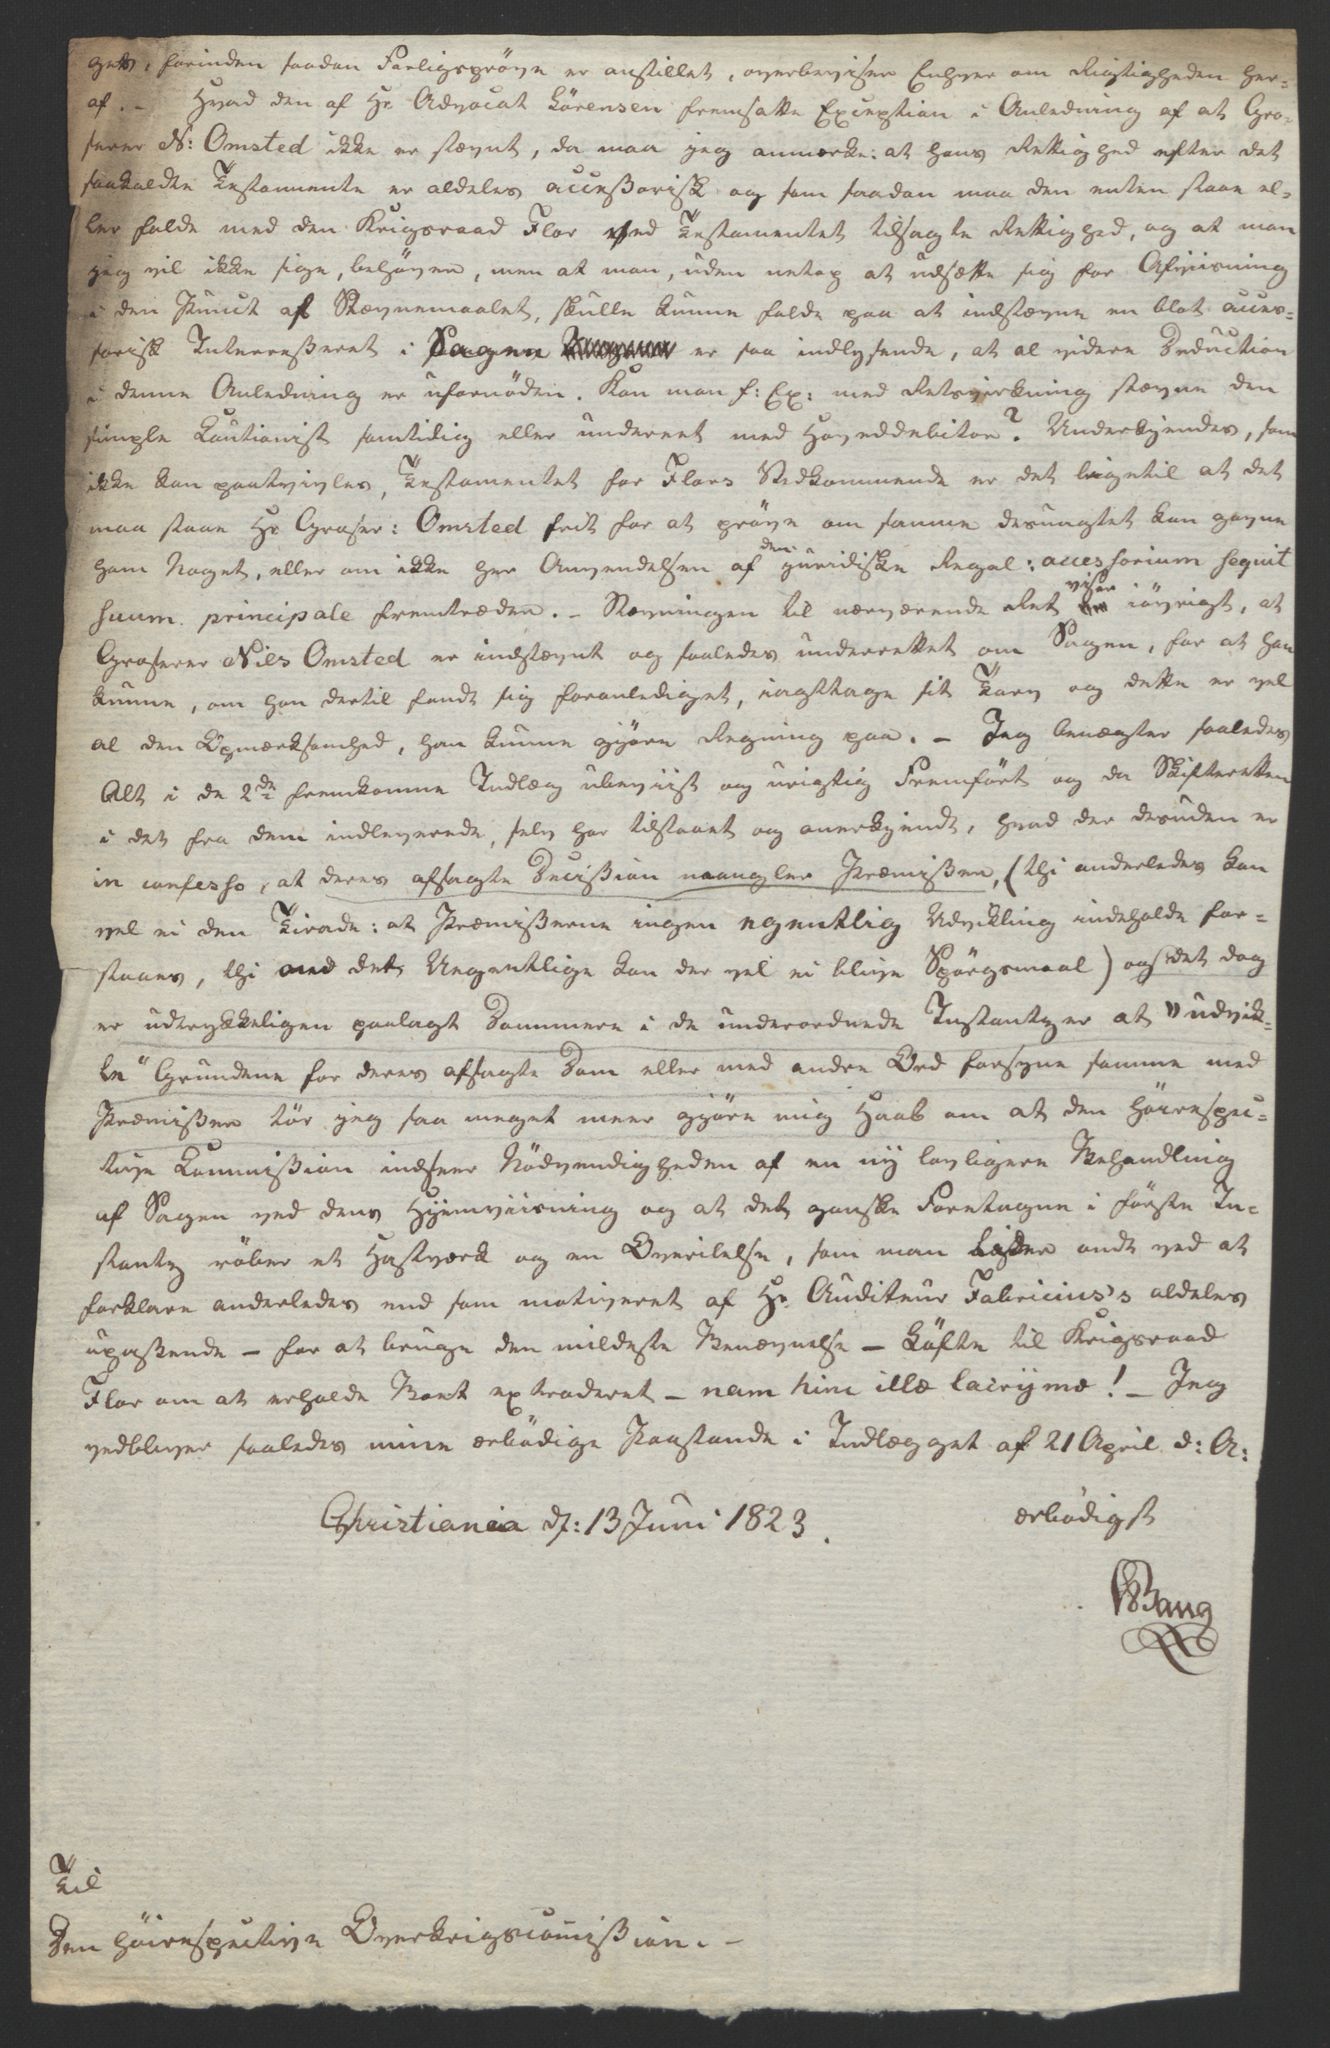 get, forinden saadan Færligsprøve er anstillet, overbeviser Enhver om Rigtigheden her-
af. – Hvad den af Hr Advocat Sörensen fremsatte Exception i Anledning af at Gro-
serer N: Omsted ikke er stævnt, da maa jeg anmærke: at hans Rettighed efter det
saakaldte Testamente er aldeles accessorisk og som saadan maa den enten staae el-
ler falde med den Krigsraad Flor ved Testamentet tilsagte Rettighed, og at man
jeg vil ikke sige, behøver, men at man, uden netop at udsætte sig for Afviisning
i den Punct af Stævnemaalet, skulle kunne falde paa at indstævne en blot acces-
sorisk Interesseret i Sagen er saa indlysende, at al videre Deduction
i denne Anledning er ufornöden. Kan man f: Ex: med Retsvirkning stævne den
simple Cautionist samtidig eller underret med Hoveddebitor? Underkjendes, som
ikke kan paatvivles, Testamentet for Flors Vedkommende er det ligetil at det
maa staae Hr Groser: Omsted frit for at pröve om samme desuagtet kan gavne
ham Noget, eller om ikke her Anvendelsen af den juridiske Regel: accessorium sequit
suum principale fremtræder. – Stævningen til nærværende Ret viser iövrigt, at
Groserer Niels Omsted er indstævnt og saaledes underrettet om Sagen, for at han
kunne, om han dertil fandt sig foranlediget, iagttage sit Tarv og dette er vel
al den Opmærksomhed, han kunne gjöre Regning paa. – Jeg benægter saaledes
Alt i de 2de fremkomne Indlæg ubeviist og urigtig Fremfört og da Skifteretten
i det fra dem indleverede, selv har tilstaaet og anerkjendt, hvad der desuden er
in confesso, at deres afsagte Decission mangler Præmisser, (thi anderledes kan
vel ei den Tirade: at Præmisserne ingen egentlig Udvikling indeholde for-
staaes, thi med det Uegentlige kan der vel ei blive Spörgsmaal) og det dog
er udtrykkeligen paalagt Dommere i de underordnede Instantzer at "udvik-
le" Grundene for deres afsagte Dom eller med andre Ord forsyne samme med
Præmisser tör jeg saa meget meer gjöre mig Haab om at den Höirespec-
tive Commission indseer Nödvendigheden af en ny lovligere Behandling
af Sagen ved dens Hjemviisning og at det ganske Foretagne i förste In-
stantz röber et Hastværk og en Overilelse, som man lader ondt ved at
forklare anderledes end som motiveret af Hr Auditeur Fabricius's aldeles
upassende – for at bruge den mildeste Benævnelse – Löfte til Krigsraad
Flor om at erholde Boet extraderet – nam hinc illæ lacrymæ! – Jeg
vedbliver saaledes mine ærbödige Paastande i Indlægget af 21 April d: A:
Christiania d: 13 Juni 1823. ærbödigst
Bang
Til
Den Höirespective Overkrigscommission. –